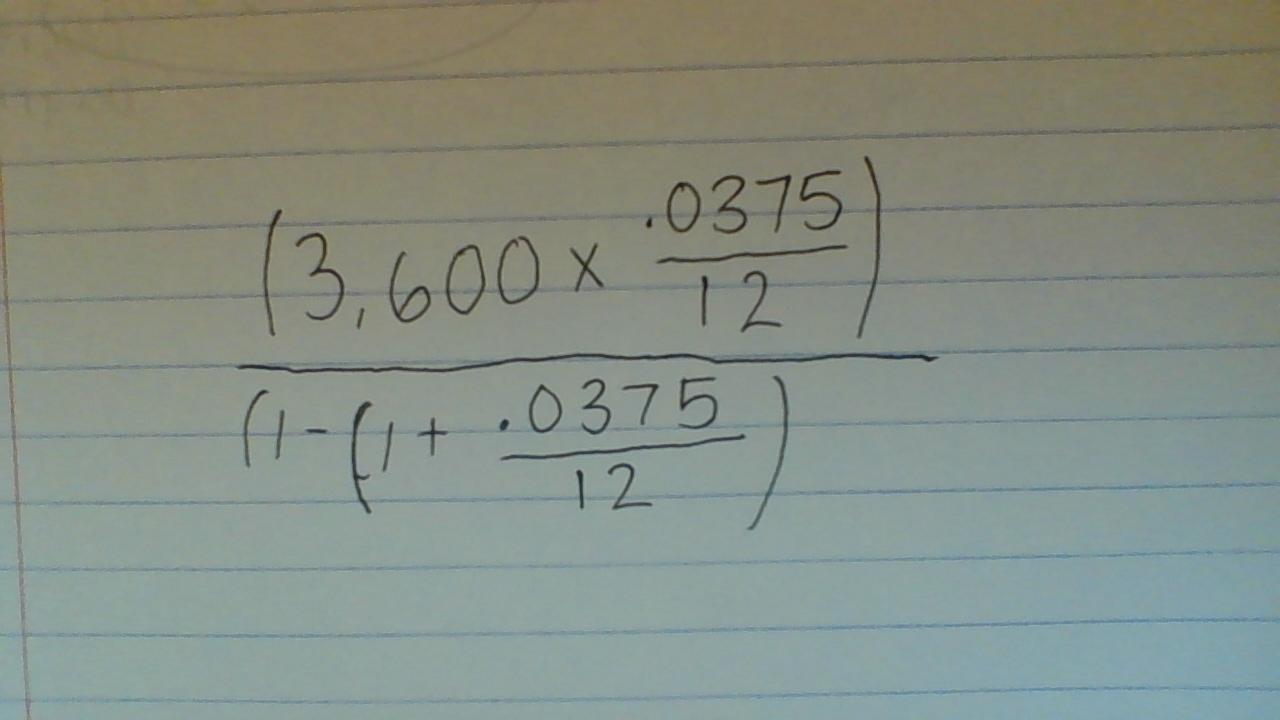 (3,600 x .0375/12)
(1-(1+ .0375/12)